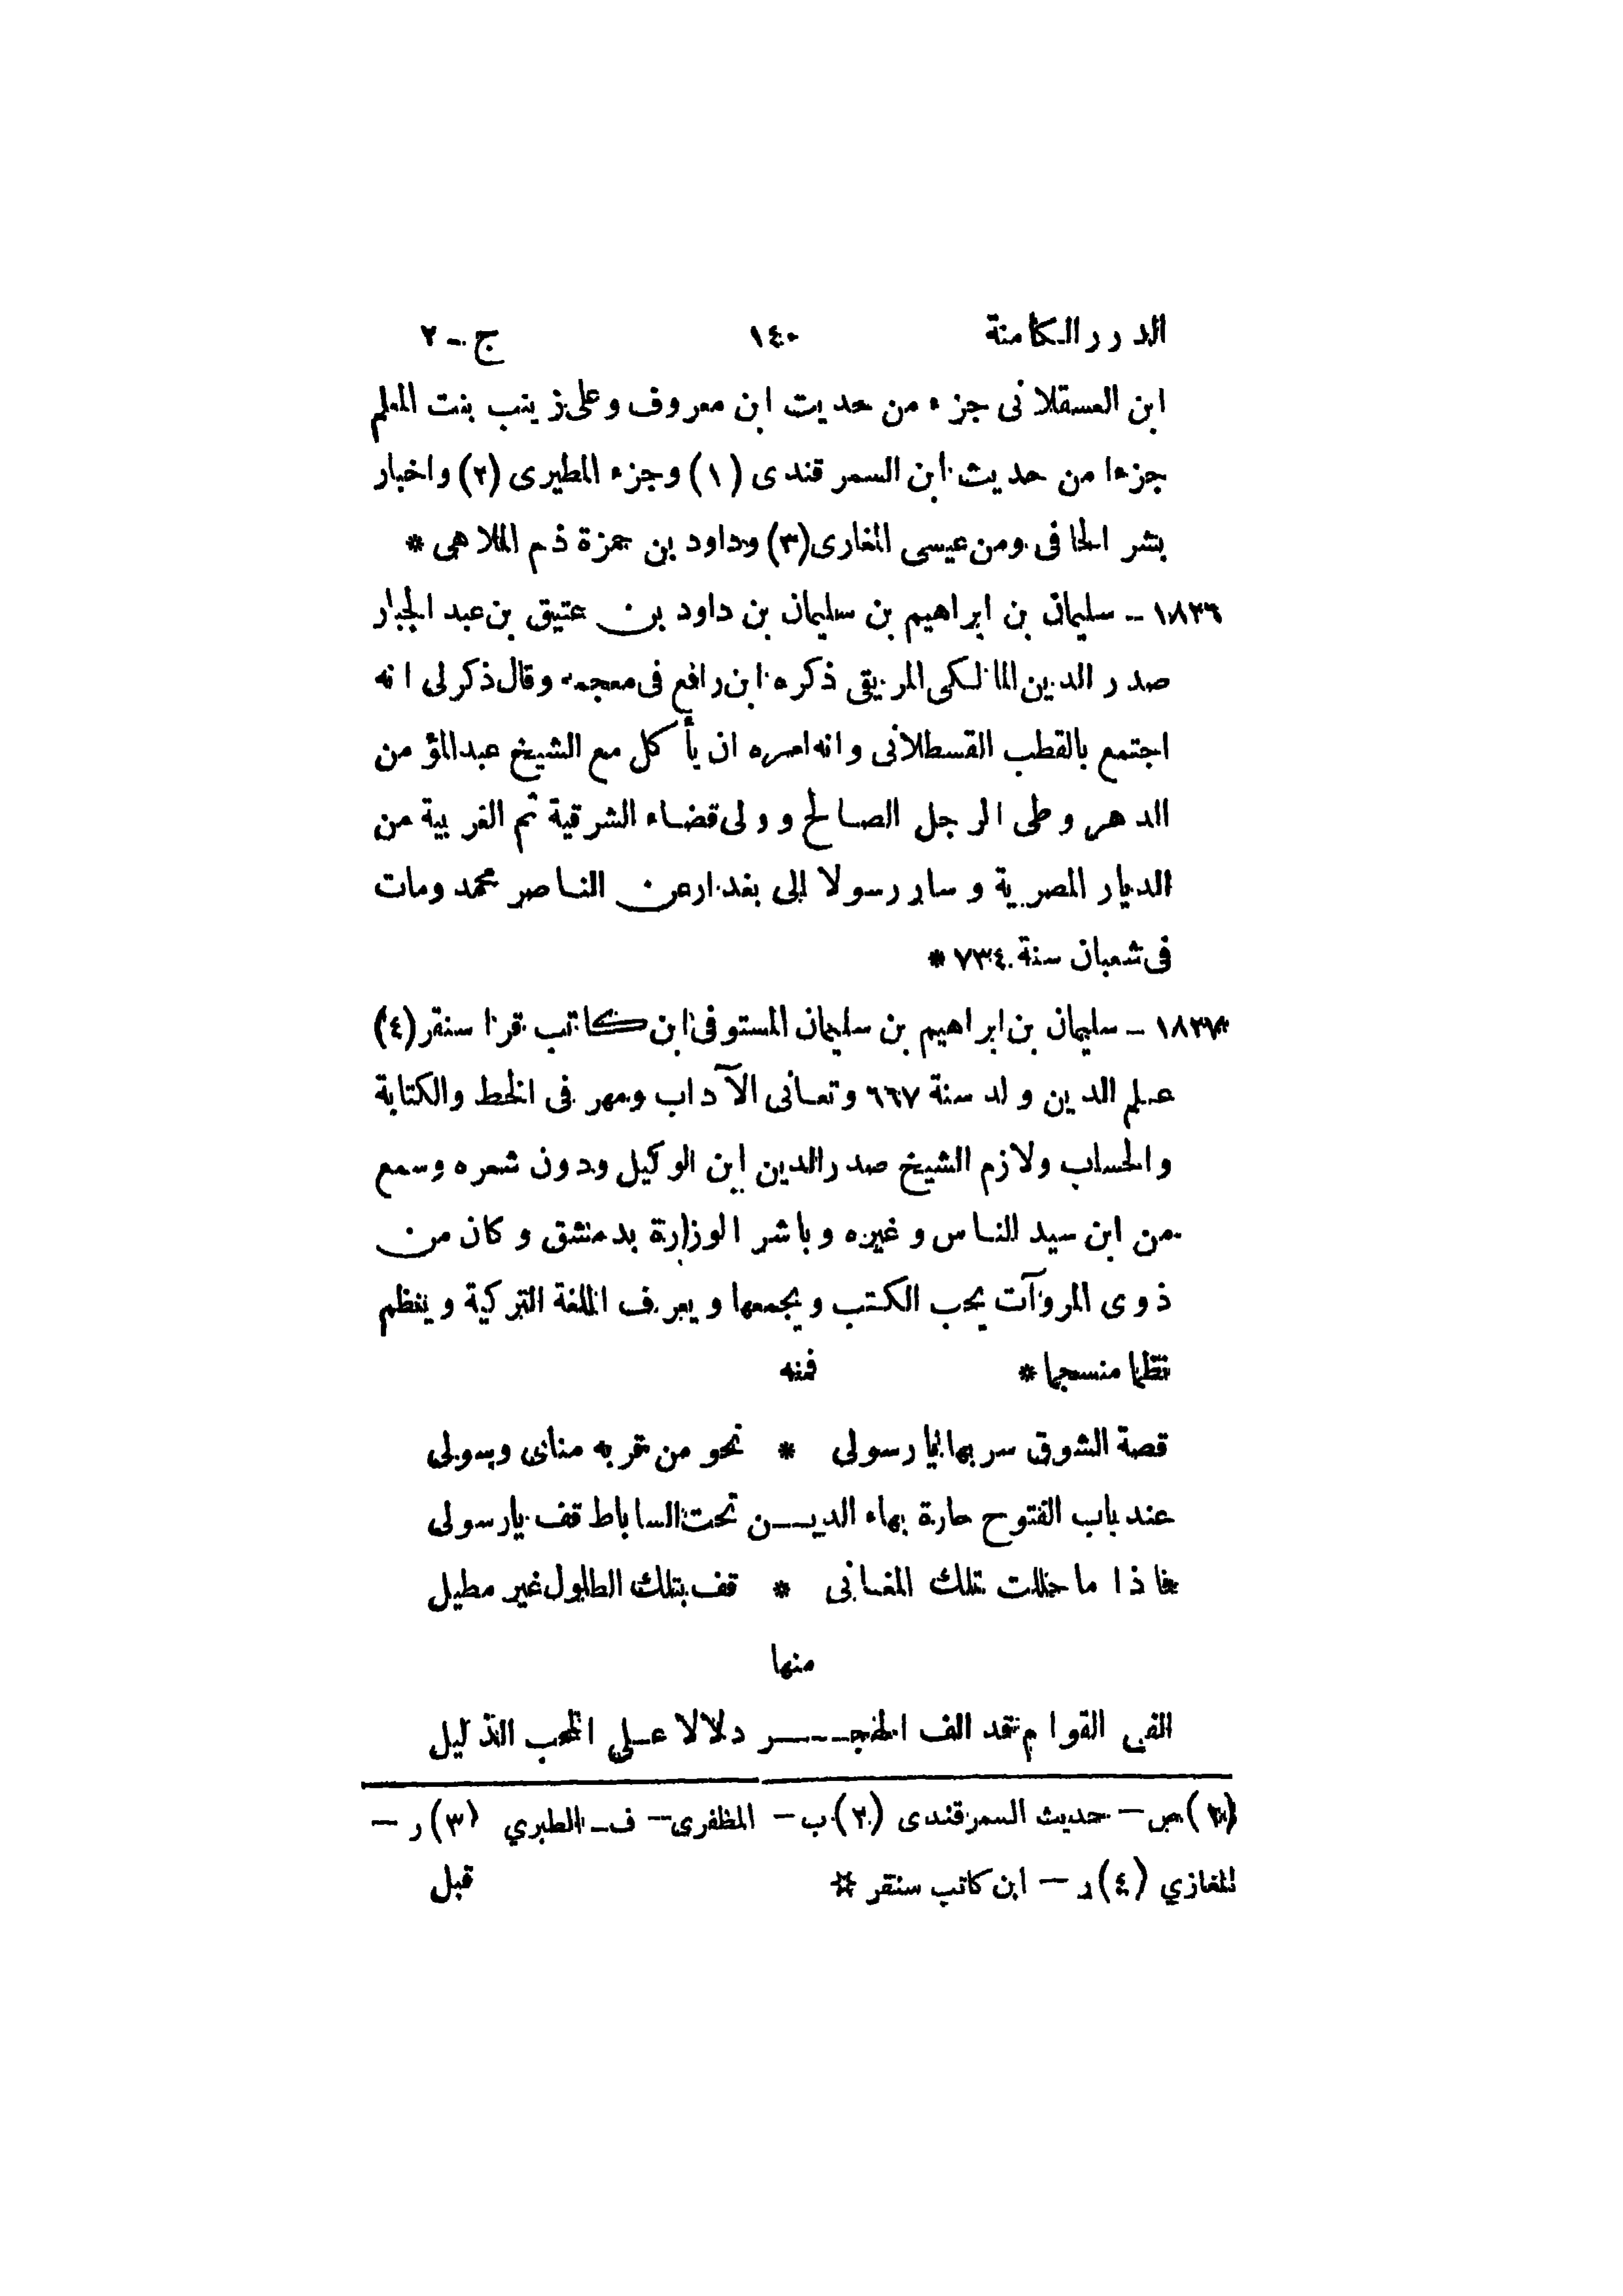 الدرر الكامنة ١٤٠ ج-٢
ابن العسقلانى جزء من حديث ابن معروف وعلى زينب بنت المعلم
جزءا من حديث ابن السمرقندى (١) وجزء المطيرى (٢) واخبار
بشر الحافى ومن عيسى المغارى (٣) وداود بن حمزة ذم الملاهى *
١٨٣٦ - سليمان بن ابراهيم بن سليمان بن داود بن عتيق بن عبد الجبار
صدر الدين المالكى المريقى ذكره ابن رافع فى معجمه وقال ذكر لى انه
اجتمع بالقطب القسطلانى وانه امره ان يأكل مع الشيخ عبد المؤمن
الدهروطى الرجل الصالح وولى قضاء الشرقية ثم الغربية من
الديار المصرية وسار رسولا الى بغداد عن الناصر محمد ومات
فى شعبان سنة ٧٣٤ *
١٨٣٧ - سليمان بن ابراهيم بن سليمان المستوفى ابن كاتب قرا سنقر (٤)
علم الدين ولد سنة ٦٦٧ وتعانى الآداب ومهر فى الخط والكتابة
والحساب ولازم الشيخ صدر الدين ابن الوكيل ودون شعره وسمع
من ابن سيد الناس وغيره وباشر الوزارة بدمشق وكان من
ذوى المروآت يحب الكتب ويجمعها ويعرف اللغة التركية وينظم
نظما منسجما * فمنه
قصة الشوق سر بها يا رسولى * نحو من قربه مناى وسولى
عند باب الفتوح حارة بهاء الديـــن تحت الساباط قف يا رسولى
فاذا ما حللت تلك المغانى * قف بتلك الطلول غير مطيل
منها
الفى القوام قد الف الهجـــر دلالا على المحب الذليل
(١) ص - حديث السمرقندى (٢) ب - المظفرى - ف - الطبري (٣) ر -
المغازي (٤) ر - ابن كاتب سنقر * قبل